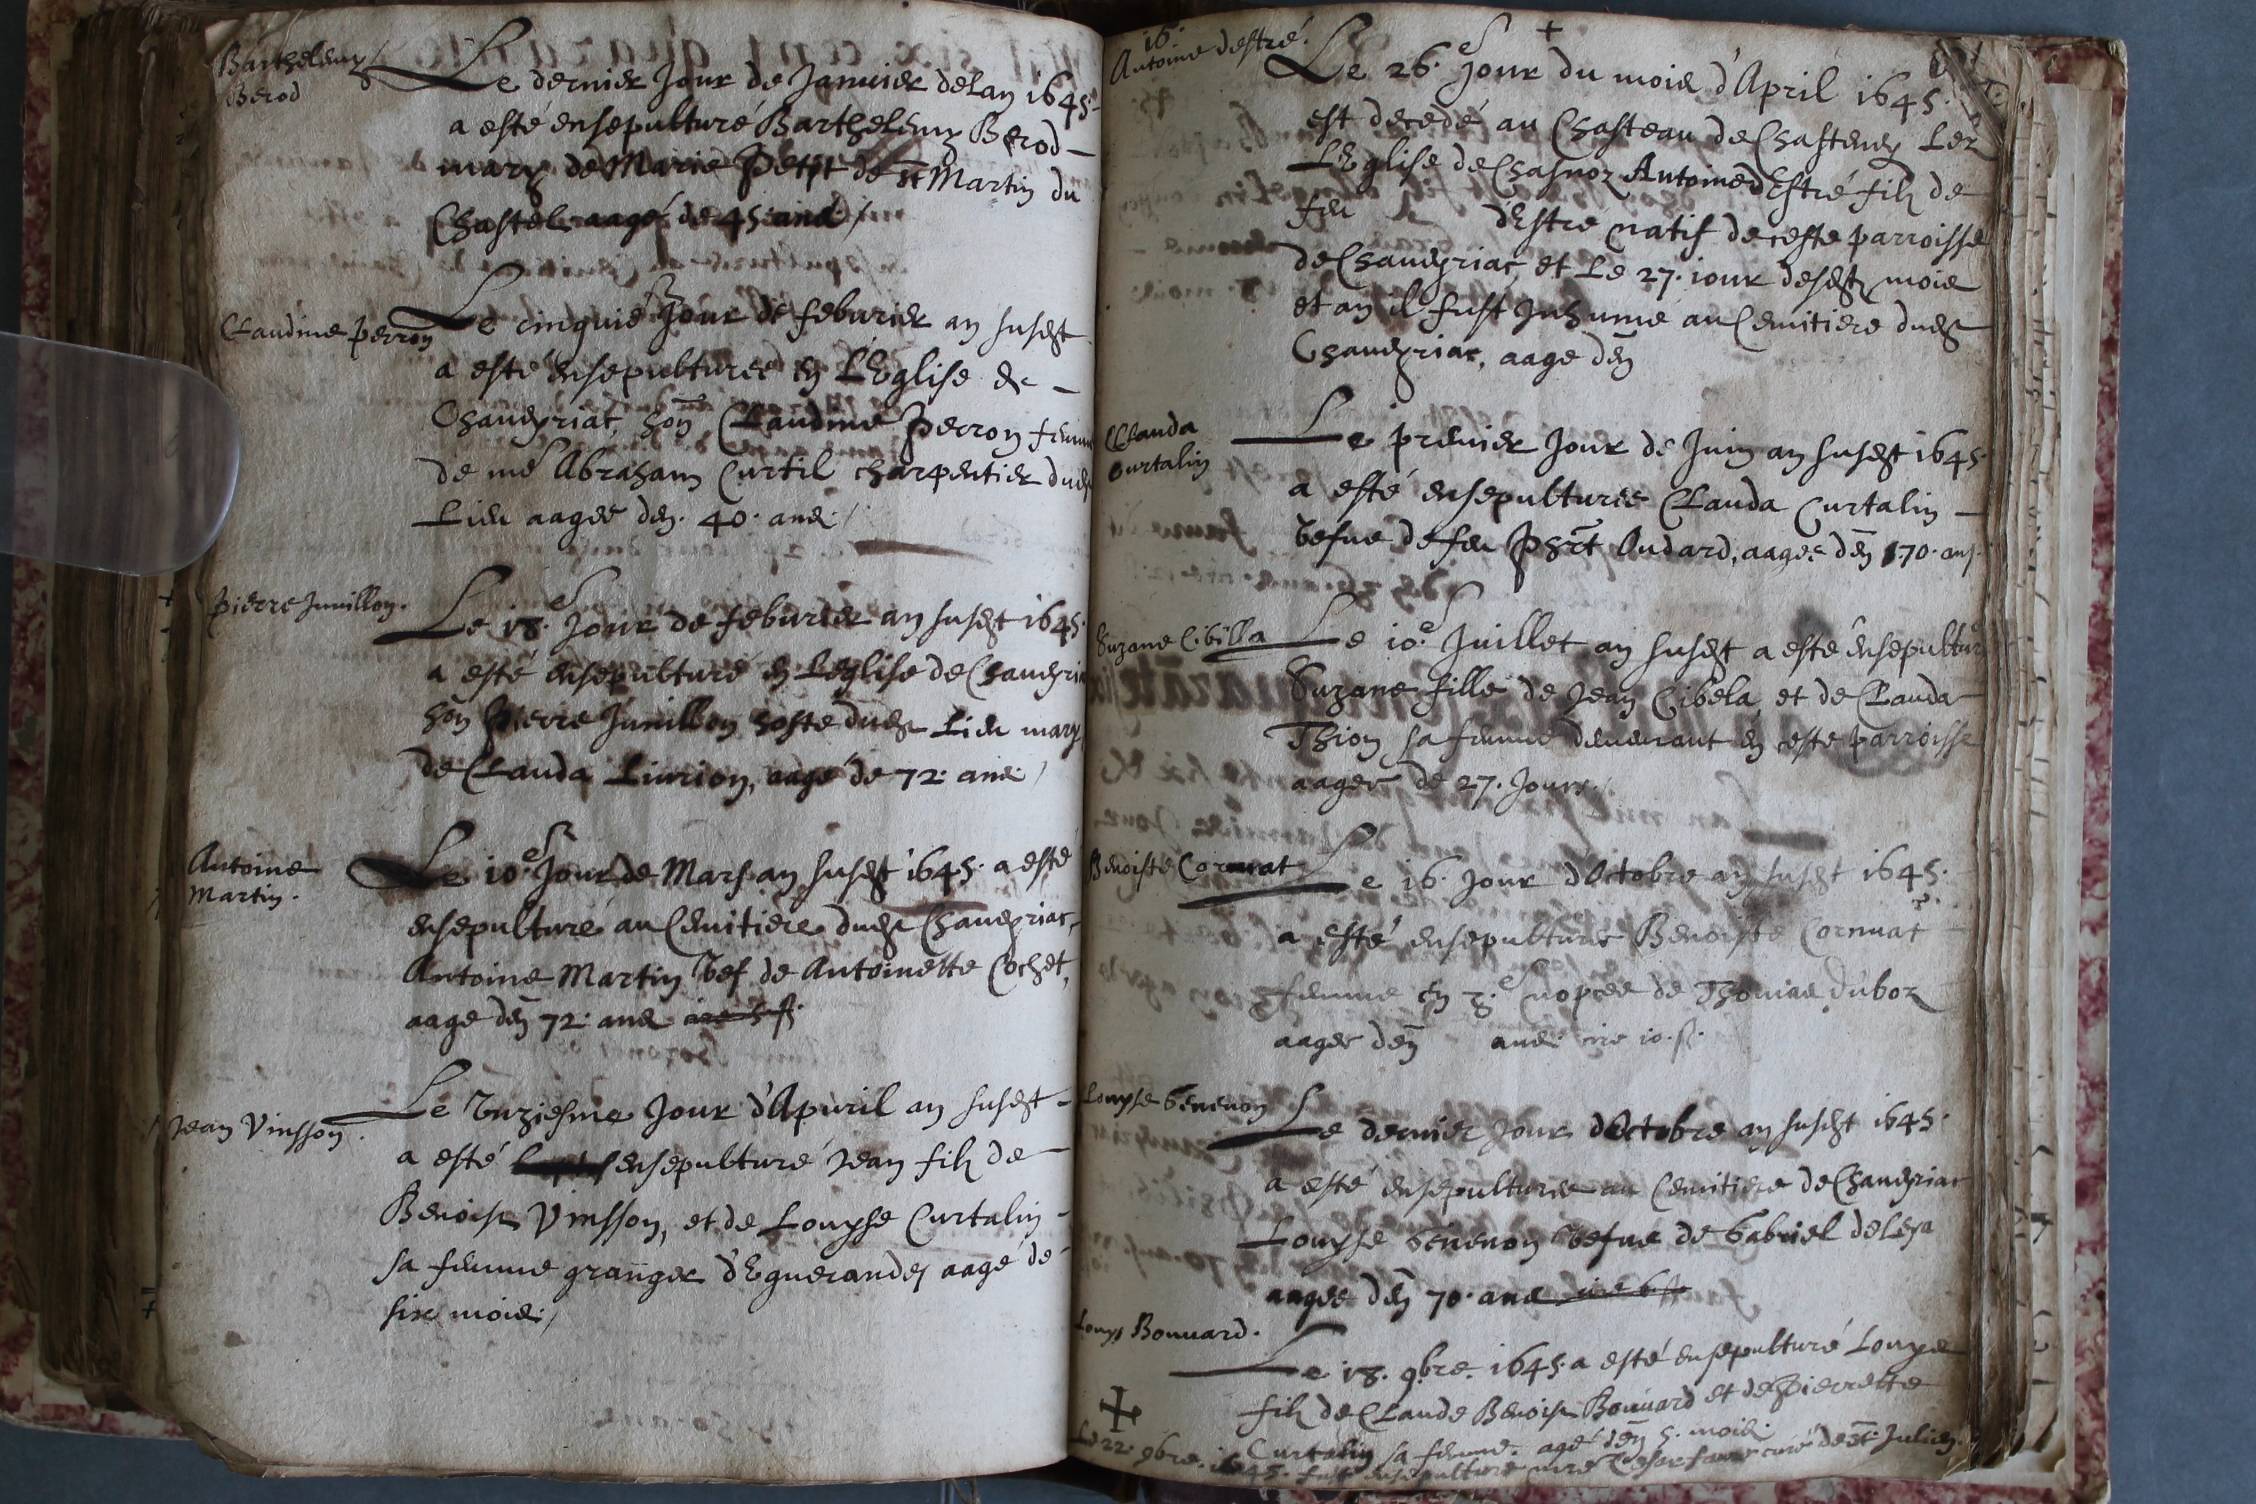 Barthelemy
Berod
Le dernier Jour de Januier de Lan 1645.
a esté ensepulturé Barthelemy Berod
mary de Marie Petit de St Martin du
Chastel aagé de 45 ans /
Claudine perron
Le cinquie Jour de feburier an susdt
a esté ensepulturee en L'Eglise de
Chaueyriat, hon Claudine Perron femme
de me Abraham Curtil charpentier dudt
Lieu aagee den. 40. ans /
pierre Juuillon.
Le 18.e Jour de feburier an susdt 1645.
a esté ensepulturé en L'eglise de Chaueyria
hon Pierre Juuillon hoste dudt Lieu mary
de Clauda Liurion, aagé de 72. ans /
Antoine
Martin.
Le 10.e Jour de Mars an susdt 1645. a esté
ensepulturé au Cemitiere dudt Chaueyriat,
Antoine Martin Vef de Antoinette Cochet,
aage den 72. ans
Jean Vinsson.
Le Vnziesme Jour d'Apuril an susdt
a esté ensepulturé Jean filz de
Benoist Vinsson, et de Louyse Curtalin
sa femme granger d'Eguerandes aagé de
six mois /
16.
Antoine destré.
Le 26.e Jour du mois d'April 1645.
est decedé au Chasteau de Chasteney Lez
L'Eglise de Chasnoz Antoine dEstré filz de
feu dEstre natif de ceste parroisse
de Chaueyriat et Le 27. iour desdtz mois
et an il fust Inhumé au Cemitiere dudt
Chaueyriat, aage den
Clauda
Curtalin
Le premier Jour de Juin an susdt 1645.
a esté ensepulturee Clauda Curtalin
Vefue de feu Phrt Oudard, aagee den 70. ans.
Suzane Cibilla
Le 10.e Juillet an susdt a esté ensepultur
Suzane fille de Jean Cibela, et de Clauda
Thion sa femme demeurant en ceste parroisse
aagee de 27. Jours /
Benoiste Cormat
Le 16. Jour d'Octobre an susdt 1645.
a esté ensepulturee Benoiste Cormat
femme en 3.e nopces de Thomas Duboz
aagee den ans
Louyse Geneuon
Le dernier Jour d'Octobre an susdt 1645.
a esté ensepulturee au Cemitiere de Chaueyriat
Louyse Geneuon Vefue de Gabriel deLeya
aagee den 70. ans
Louys Bouuard.
Le 18. 9bre. 1645. a esté ensepulturé Louys
filz de Claude Benoist Bouuard et de Pierrette
Curtalin sa femme. agé den 5. mois
Le 22. 9bre. 1645. fust ensepulturé mre curé de St. Julien.